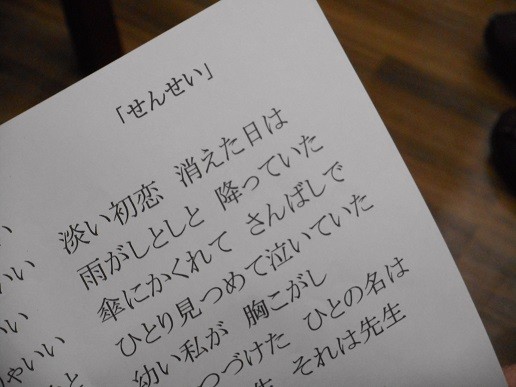 「せんせい」
淡い初恋 消えた日は
雨がしとしと 降っていた
傘にかくれて さんばしで
ひとり見つめて泣いていた
幼い私が 胸こがし
つづけた ひとの名は
それは先生
い
いい
いい
ゃいい